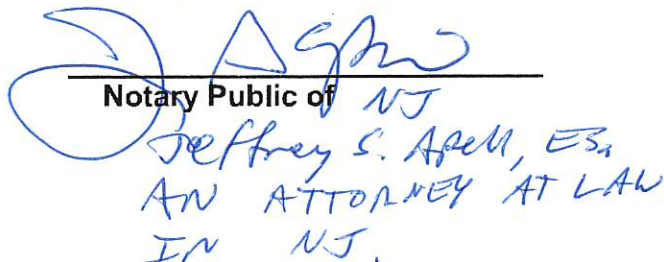 Notary Public of NJ
Jeffrey S. Apell, ESq
AN ATTORNEY AT LAW
IN NJ.